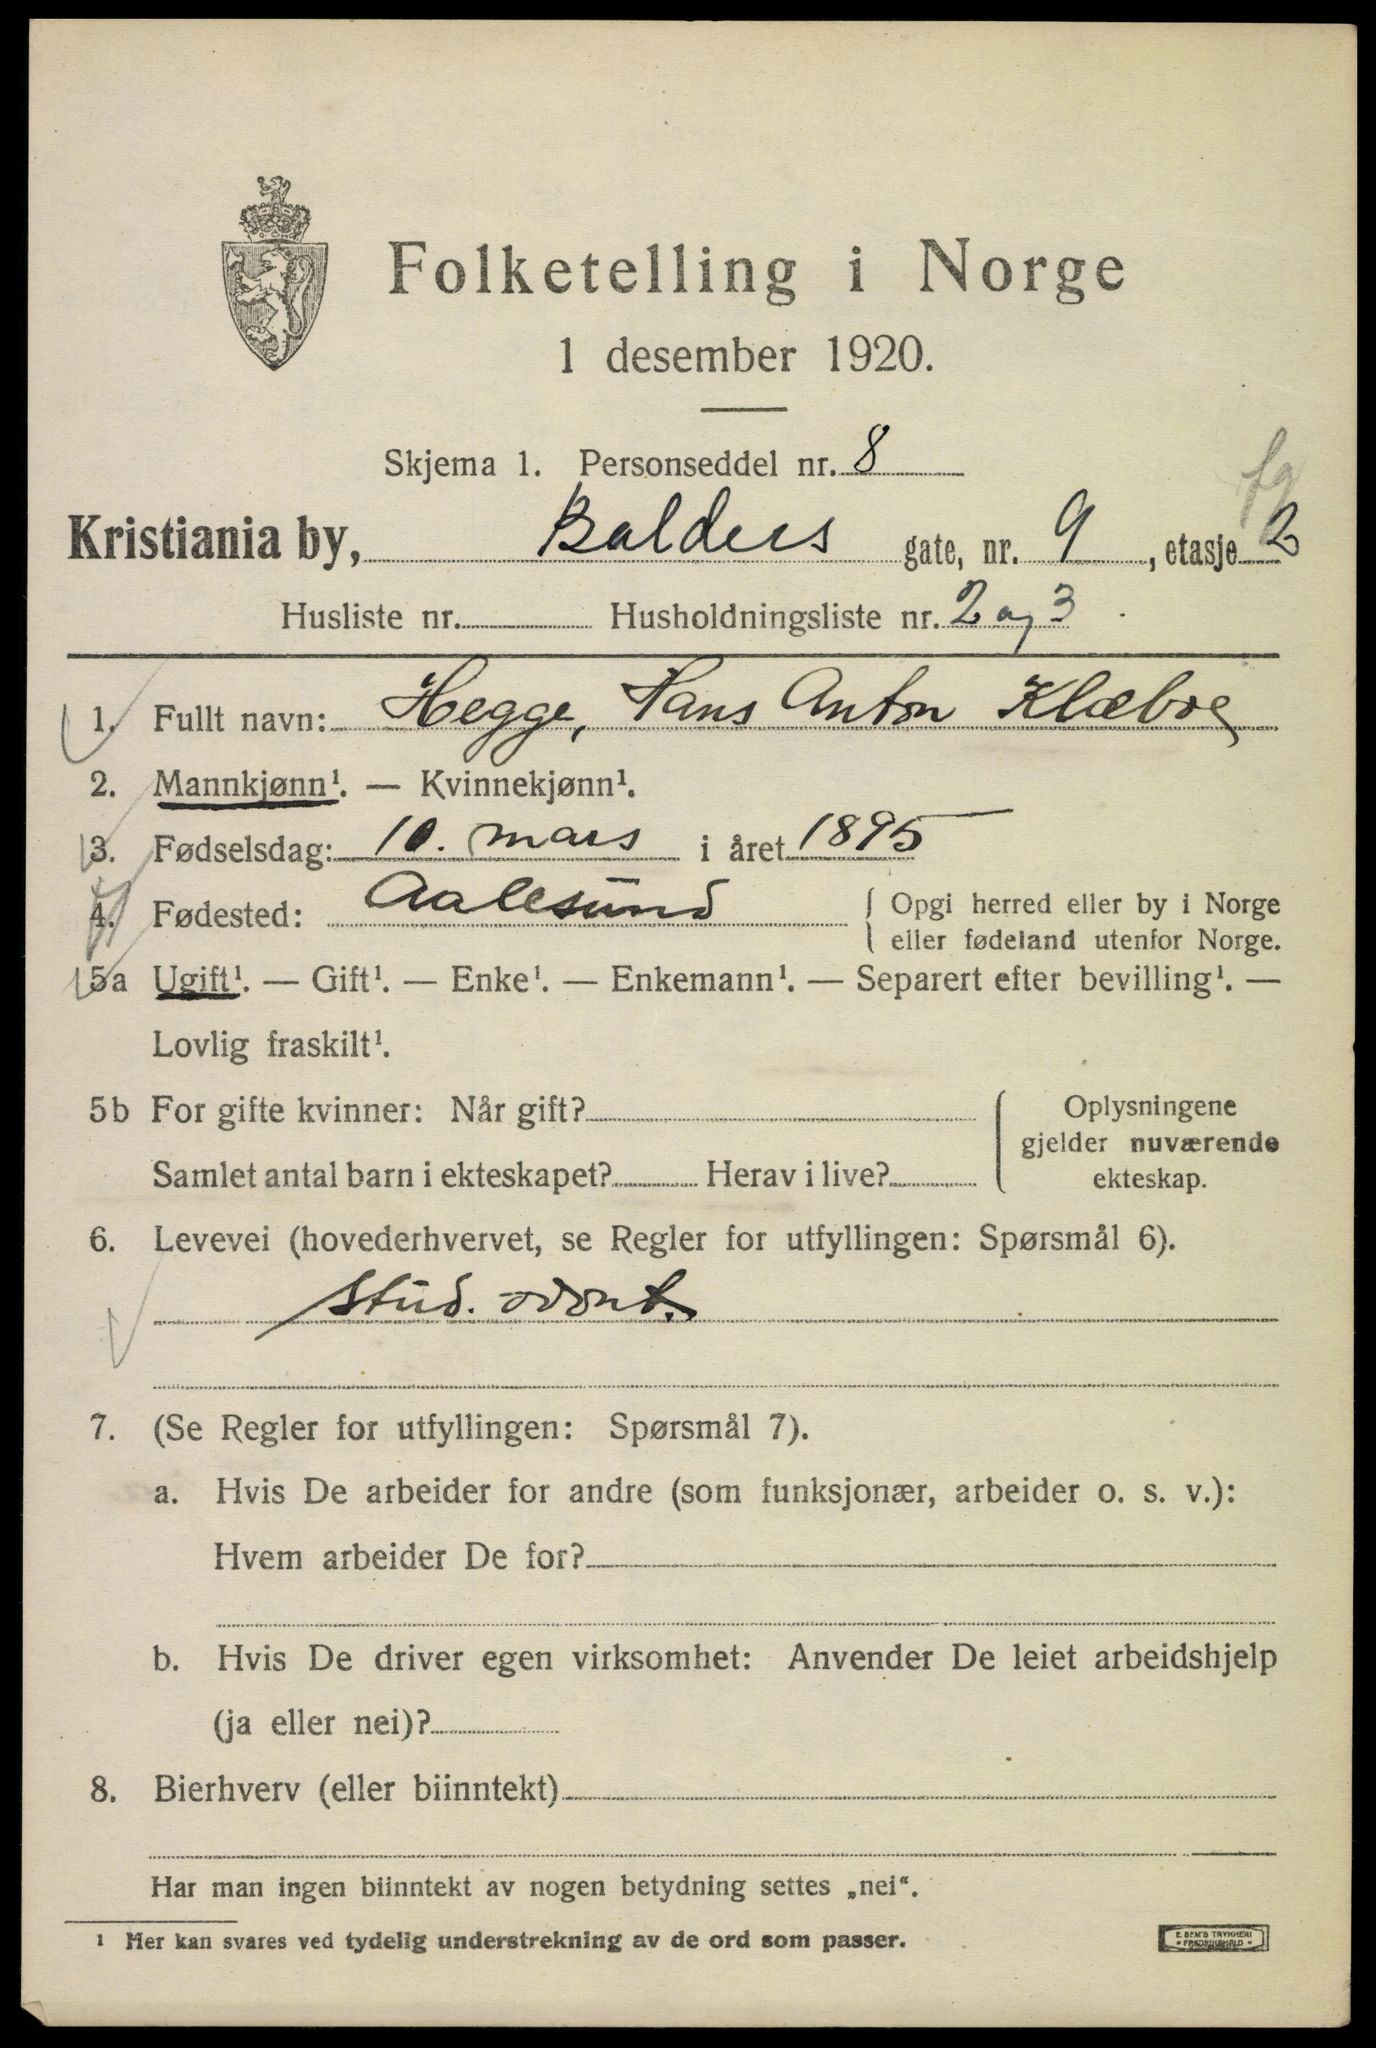 Folketelling i Norge
1 desember 1920.
Skjema 1. Personseddel nr. 8
Kristiania by, Balders gate, nr. 9, etasje 2
Husliste nr. Husholdningsliste nr. 2 og 3
1. Fullt navn: Hegge, Hans Anton Klæboe
2. Mannkjønn¹. — Kvinnekjønn¹.
3. Fødselsdag: 10. mars i året 1895
4. Fødested: Aalesund { Opgi herred eller by i Norge
eller fødeland utenfor Norge.
5a Ugift¹. — Gift¹. — Enke¹. — Enkemann¹. — Separert efter bevilling¹. —
Lovlig fraskilt¹.
5b For gifte kvinner: Når gift? { Oplysningene
gjelder nuværende
Samlet antal barn i ekteskapet? Herav i live? ekteskap.
6. Levevei (hovederhvervet, se Regler for utfyllingen: Spørsmål 6).
stud. odont.
7. (Se Regler for utfyllingen: Spørsmål 7).
a. Hvis De arbeider for andre (som funksjonær, arbeider o. s. v.):
Hvem arbeider De for?
b. Hvis De driver egen virksomhet: Anvender De leiet arbeidshjelp
(ja eller nei)?
8. Bierhverv (eller biinntekt)
Har man ingen biinntekt av nogen betydning settes „nei“.
¹ Her kan svares ved tydelig understrekning av de ord som passer.
E. SEM'S TRYKKERI
FREDRIKSHALD